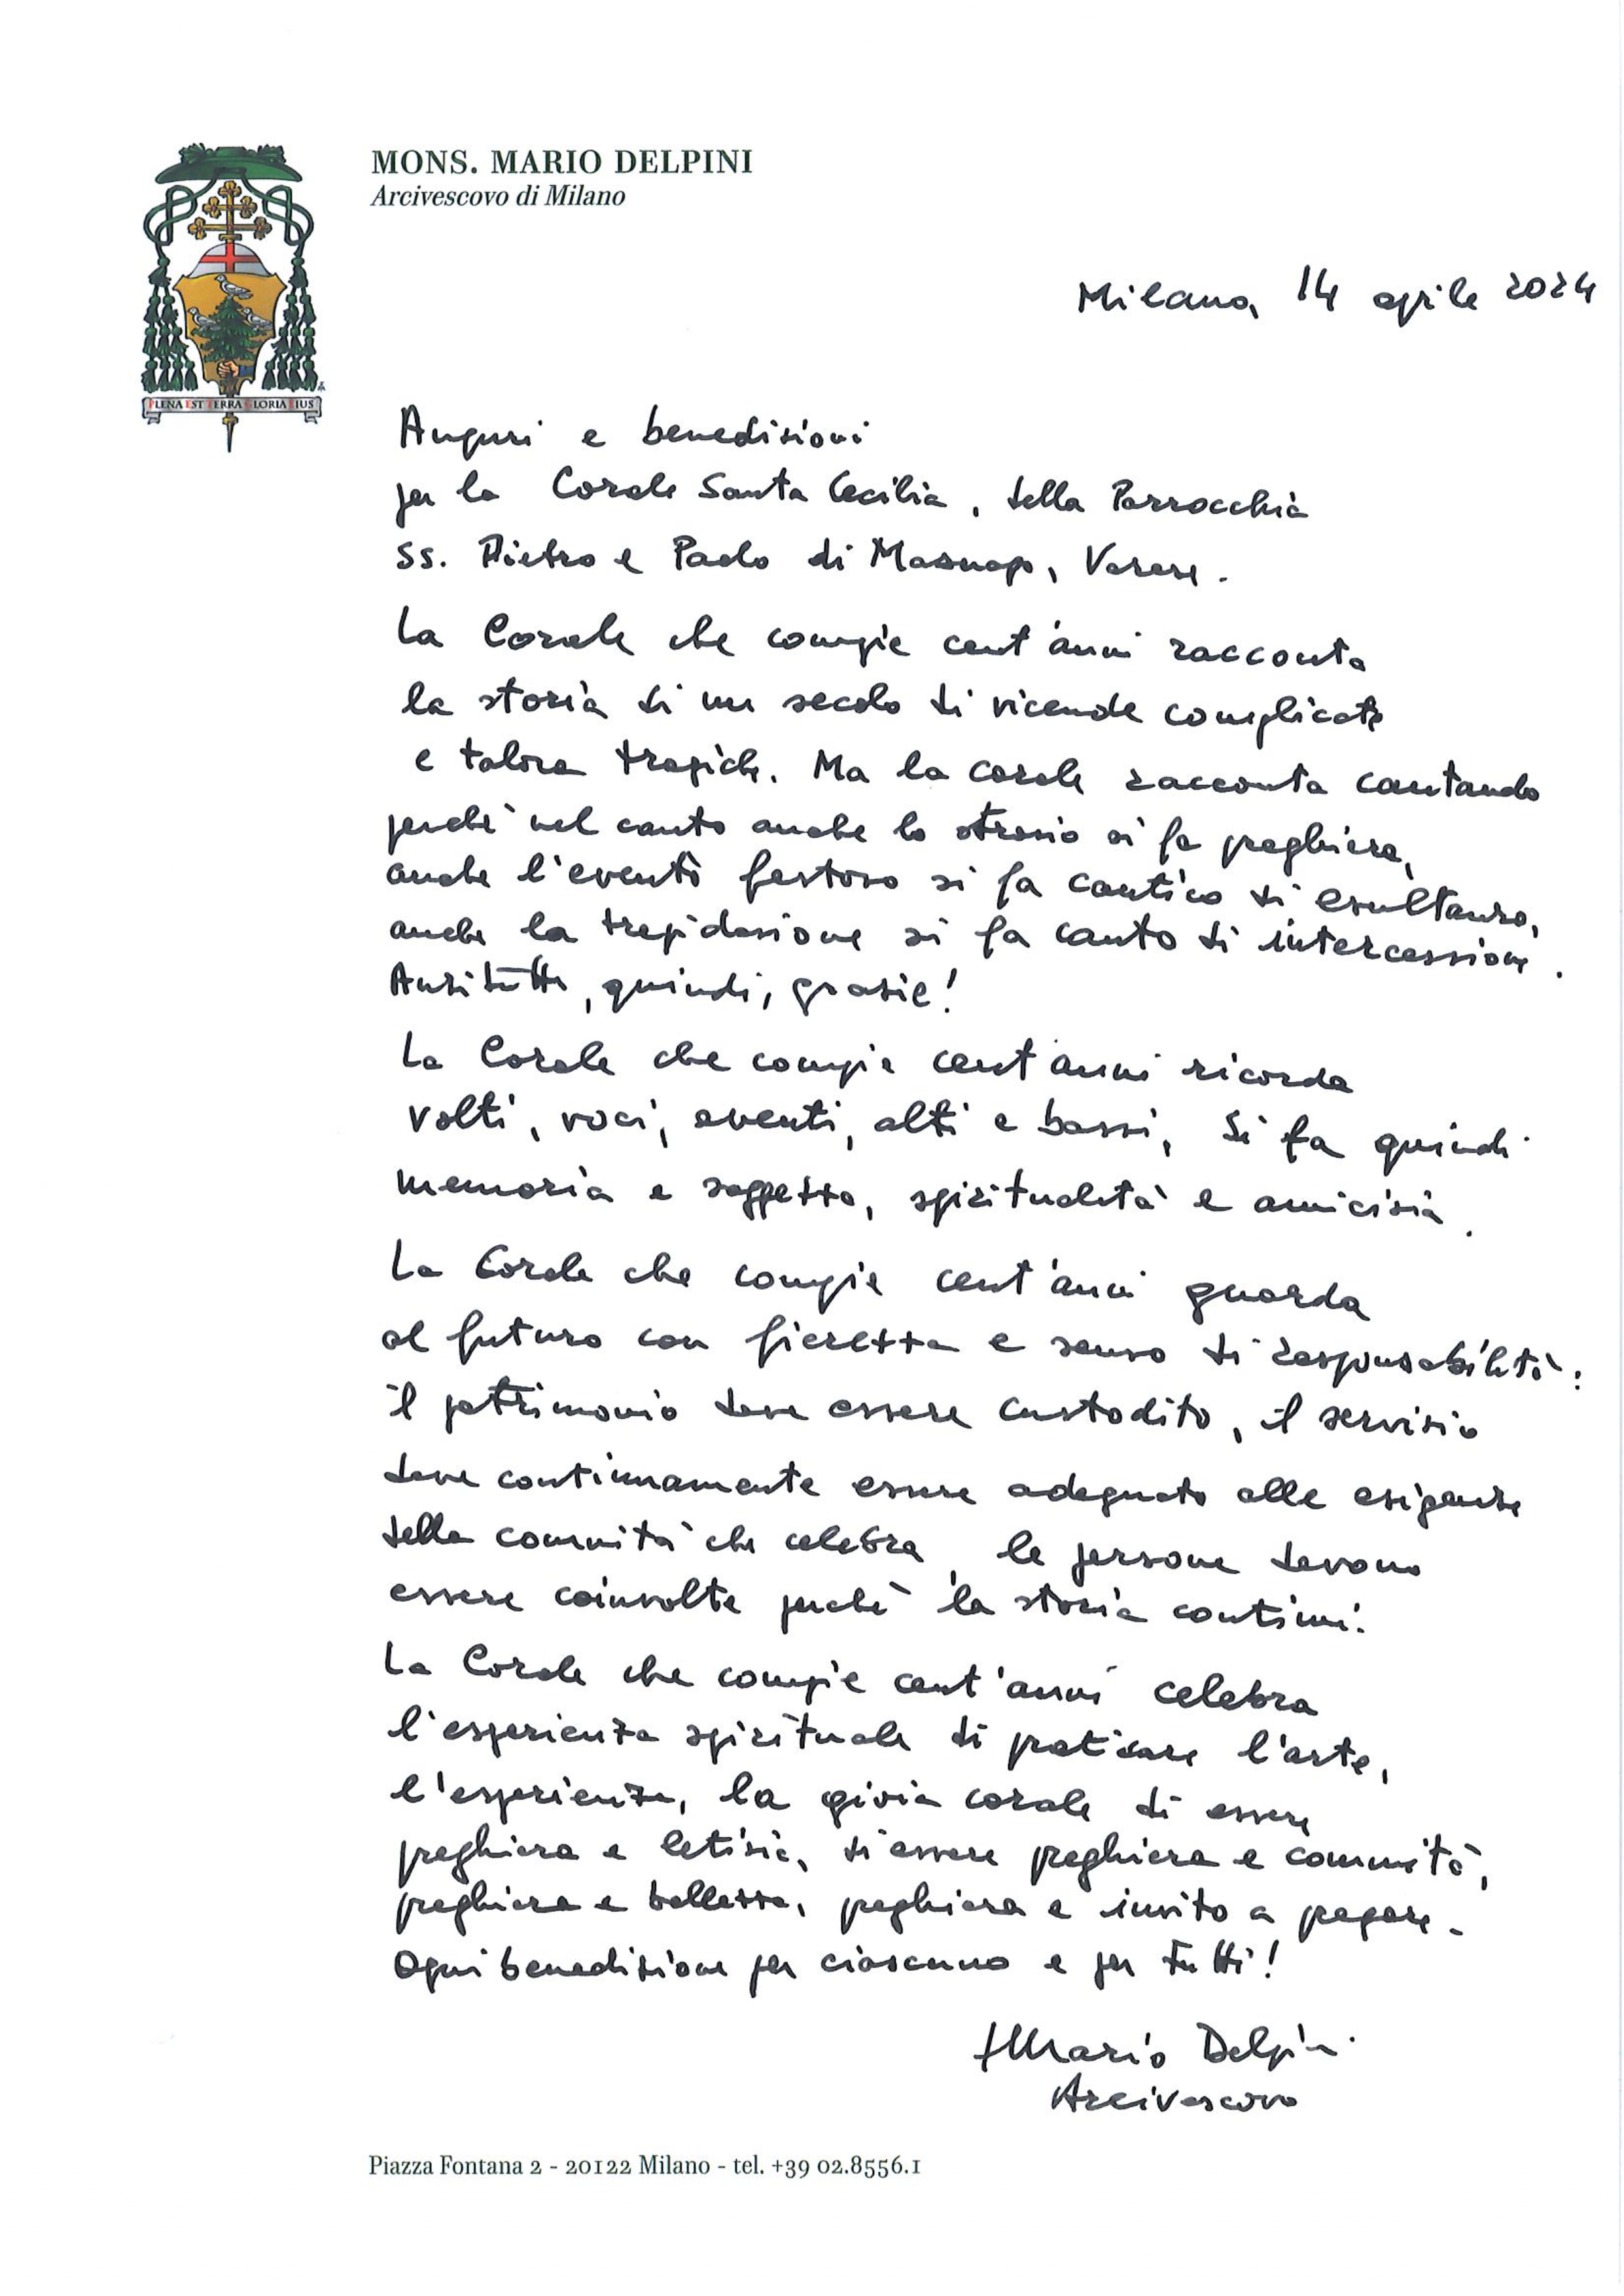 MONS. MARIO DELPINI
Arcivescovo di Milano
Milano, 14 aprile 2024
PLENA EST TERRA GLORIA EIUS
Auguri e benedizioni
per la Corale Santa Cecilia, della Parrocchia
SS. Pietro e Paolo di Masnago, Varese.
La Corale che compie cent'anni racconta
la storia di un secolo di vicende complicate
e talora tragiche. Ma la corale racconta cantando
perché nel canto anche lo strazio si fa preghiera,
anche l'evento festoso si fa cantico di esultanza,
anche la trepidazione si fa canto di intercessione.
Anzitutto, quindi, grazie!
La Corale che compie cent'anni ricorda
volti, voci, eventi, alti e bassi, si fa quindi
memoria e soggetto, spiritualità e amicizia.
La Corale che compie cent'anni guarda
al futuro con fierezza e senso di responsabilità:
il patrimonio deve essere custodito, il servizio
deve continuamente essere adeguato alle esigenze
della comunità che celebra, le persone devono
essere coinvolte perché la storia continui.
La Corale che compie cent'anni celebra
l'esperienza spirituale di praticare l'arte,
l'esperienza, la gioia corale di essere
preghiera e letizia, di essere preghiera e comunità,
preghiera e bellezza, preghiera e invito a pregare.
Ogni benedizione per ciascuno e per tutti!
+ Mario Delpini
Arcivescovo
Piazza Fontana 2 - 20122 Milano - tel. +39 02.8556.1